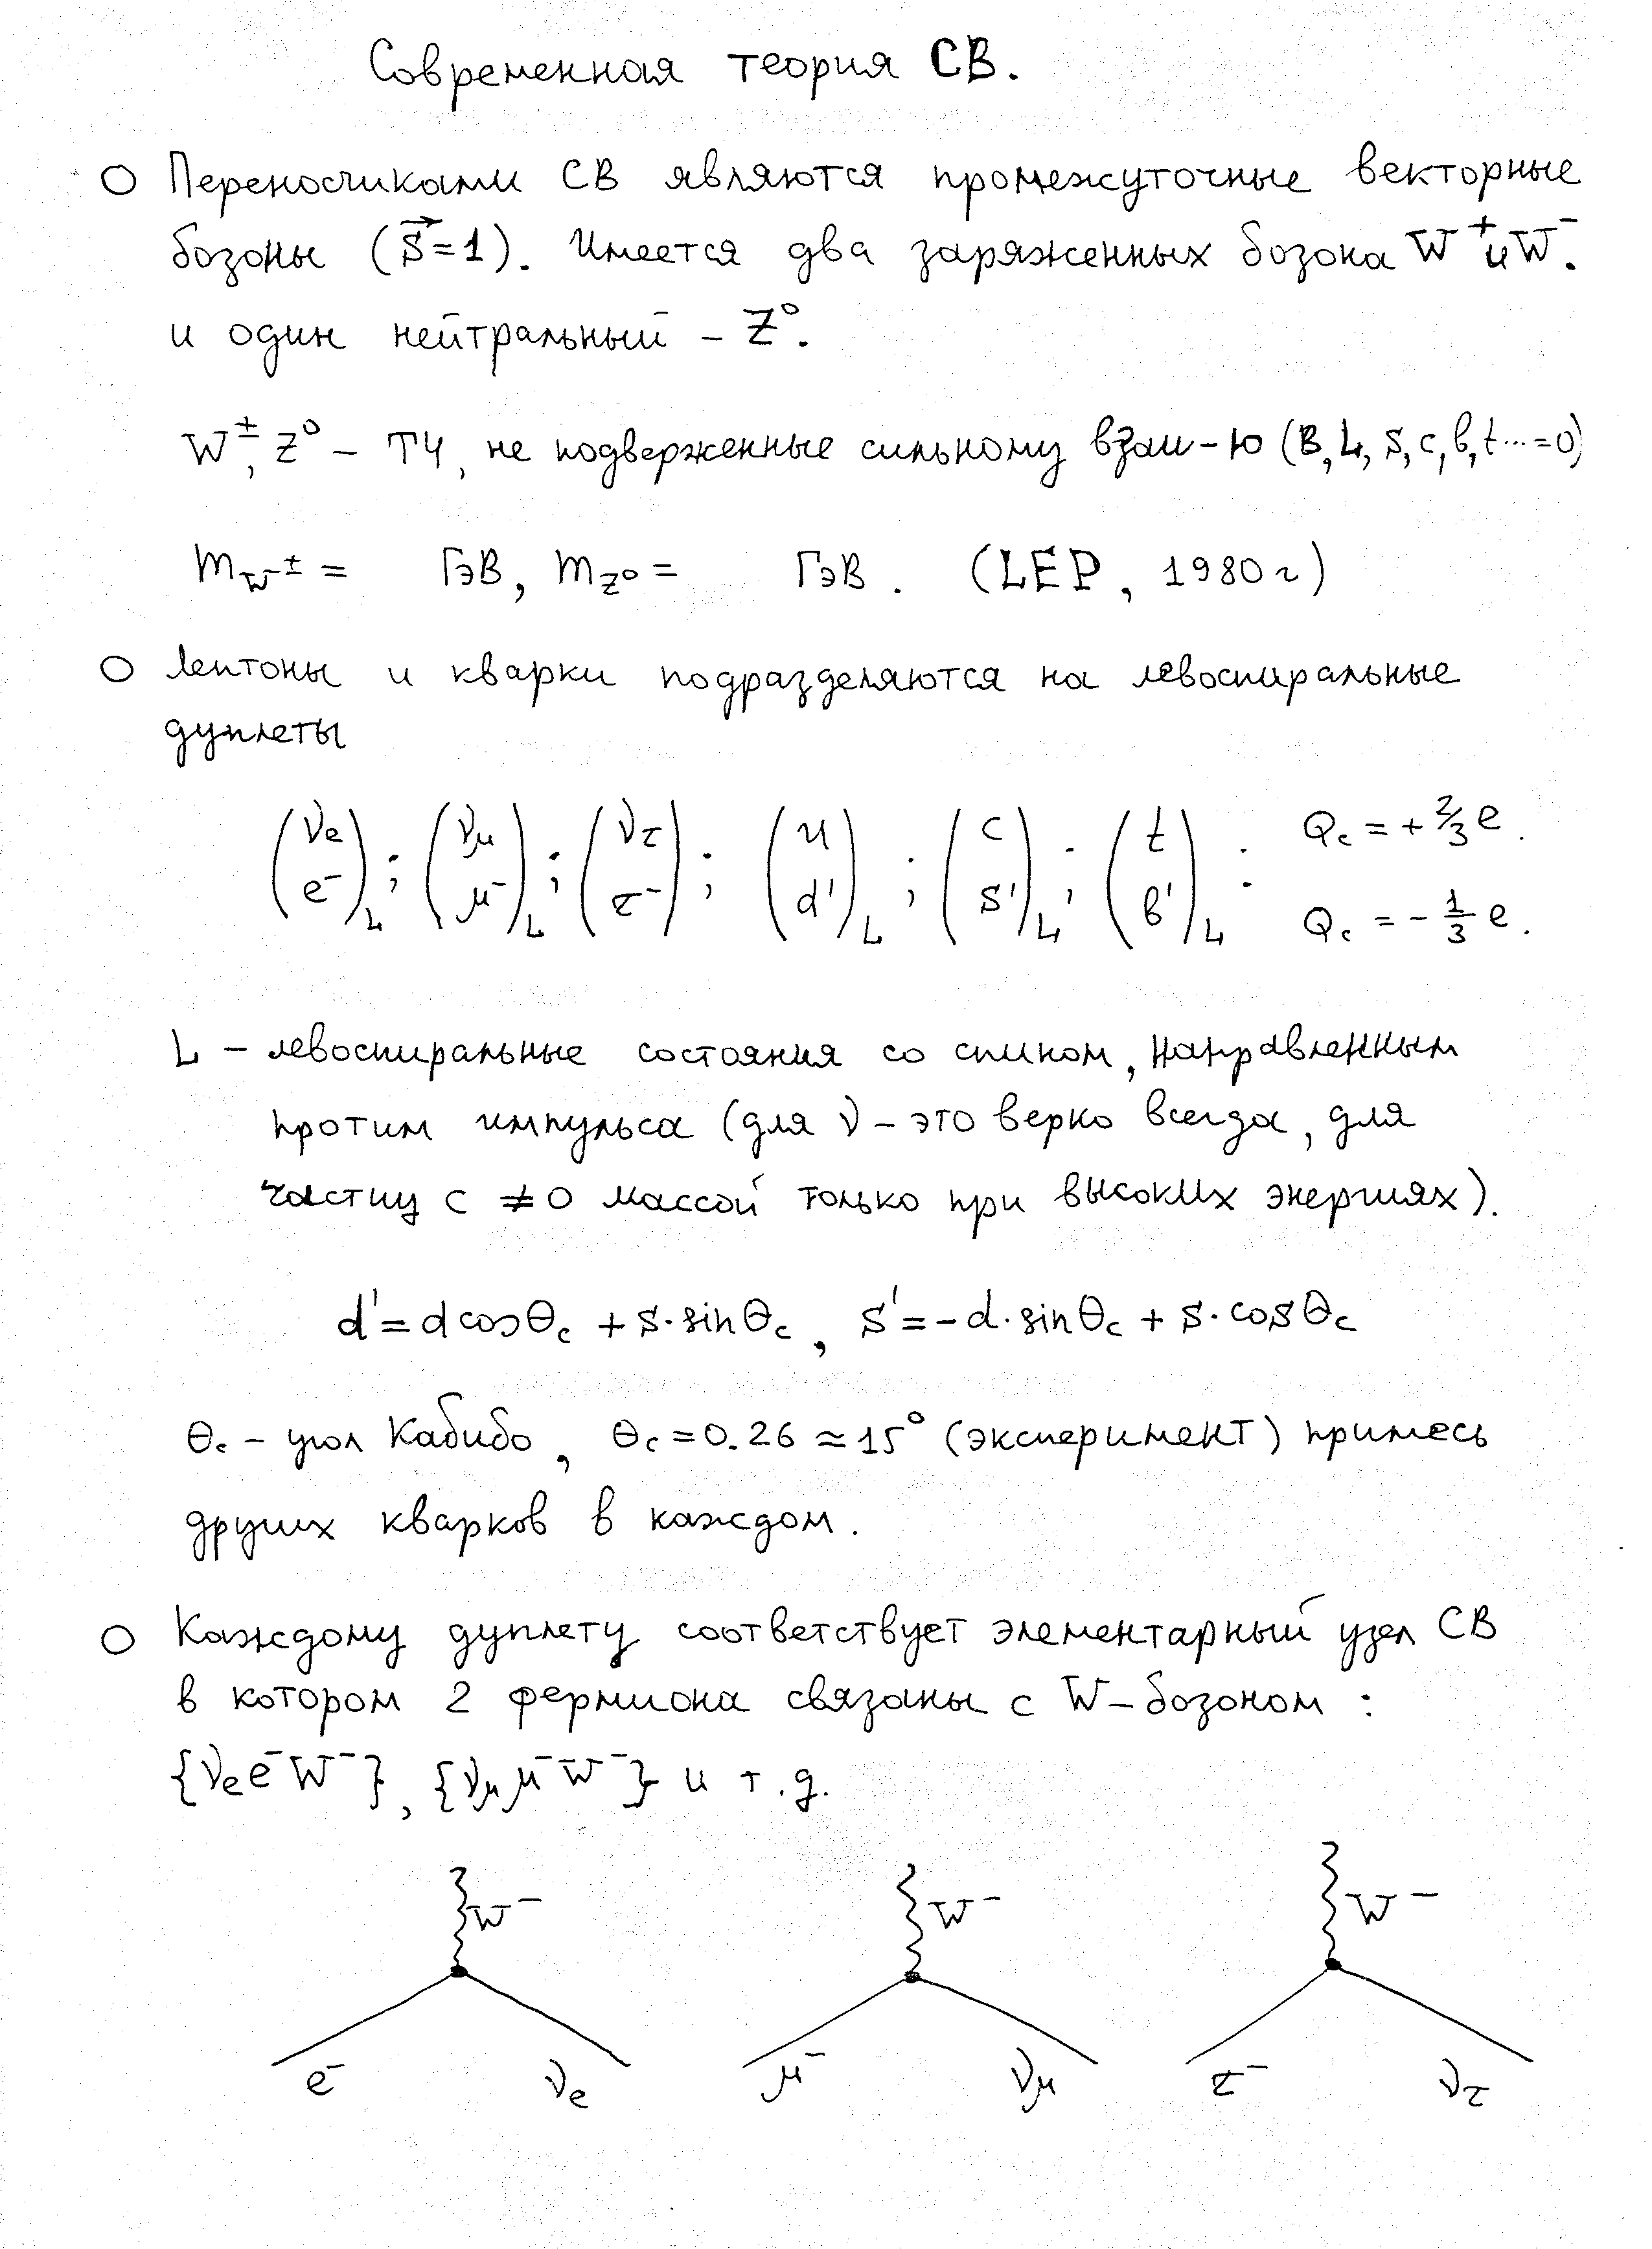 Современная теория СВ.
О Переносчиками СВ являются промежуточные векторные
бозоны (S⃗=1). Имеется два заряженных бозона W⁺ и W⁻.
и один нейтральный – Z⁰.
W±, Z⁰ – ТЧ, не подверженные сильному взаи-ю (B, L, S, c, b, t...=0)
m_W± = ГэВ, m_Z⁰ = ГэВ. (LEP, 1980г)
О Лептоны и кварки подразделяются на левоспиральные
дуплеты
(νe e⁻)L; (νμ μ⁻)L; (ντ τ⁻); (u d')L; (c s')L; (t b')L: Qc = + 2/3 e. Qc = – 1/3 e.
L – левоспиральные состояния со спином, направленным
протим импульса (для ν – это верно всегда, для
частиц с ≠0 массой только при высоких энергиях).
d' = d cosθc + s·sinθc, s' = –d·sinθc + s·cosθc
θc – угол Кабибо, θc = 0.26 ≈ 15° (эксперимент) примесь
других кварков в каждом.
О Каждому дуплету соответствует элементарный узел СВ
в котором 2 фермиона связаны с W–бозоном :
{νe e⁻ W⁻}, {νμ μ⁻ W⁻} и т.д.
W⁻ W⁻ W⁻
e⁻ νe μ⁻ νμ τ⁻ ντ